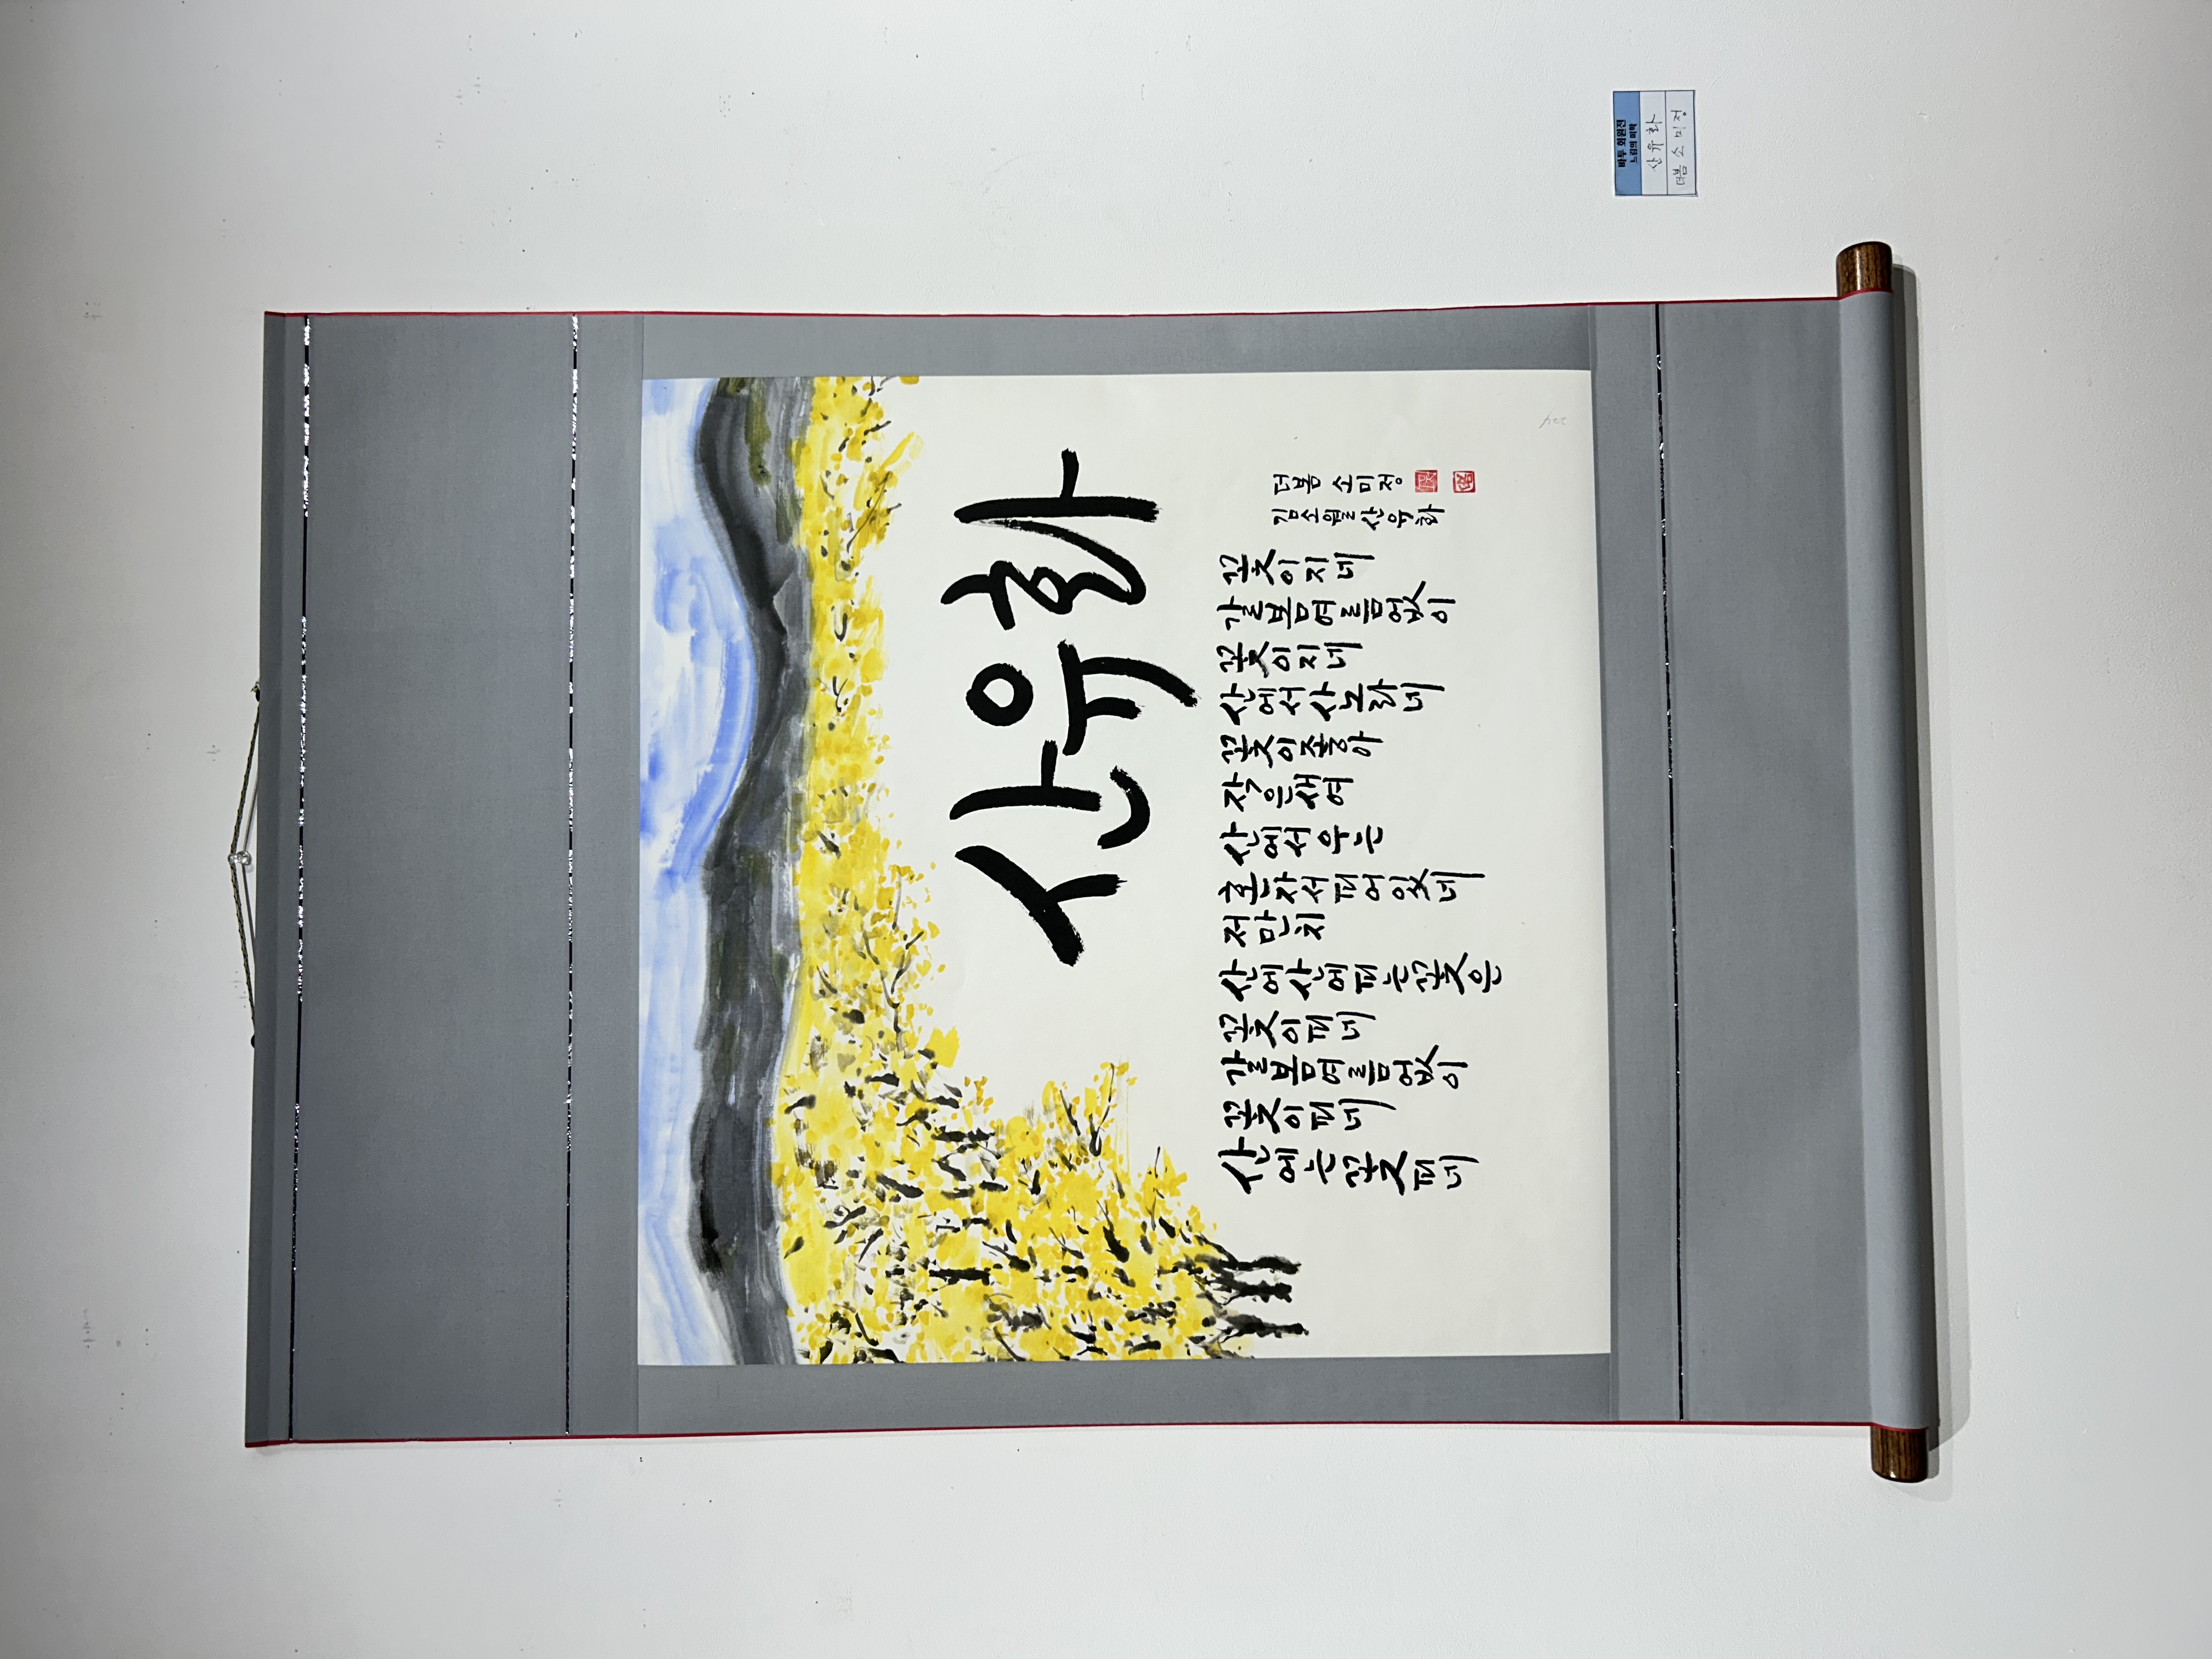 산유화
산에는꽃피네
꽃이피네
갈봄여름없이
꽃이피네
산에산에피는꽃은
저만치
혼자서피어있네
산에서우는
작은새여
꽃이좋아
산에서사노라네
꽃이지네
갈봄여름없이
꽃이지네
김소월산유화
더봄 소미정
바투 회원전
느림의 미학
산유화
더봄 소미정